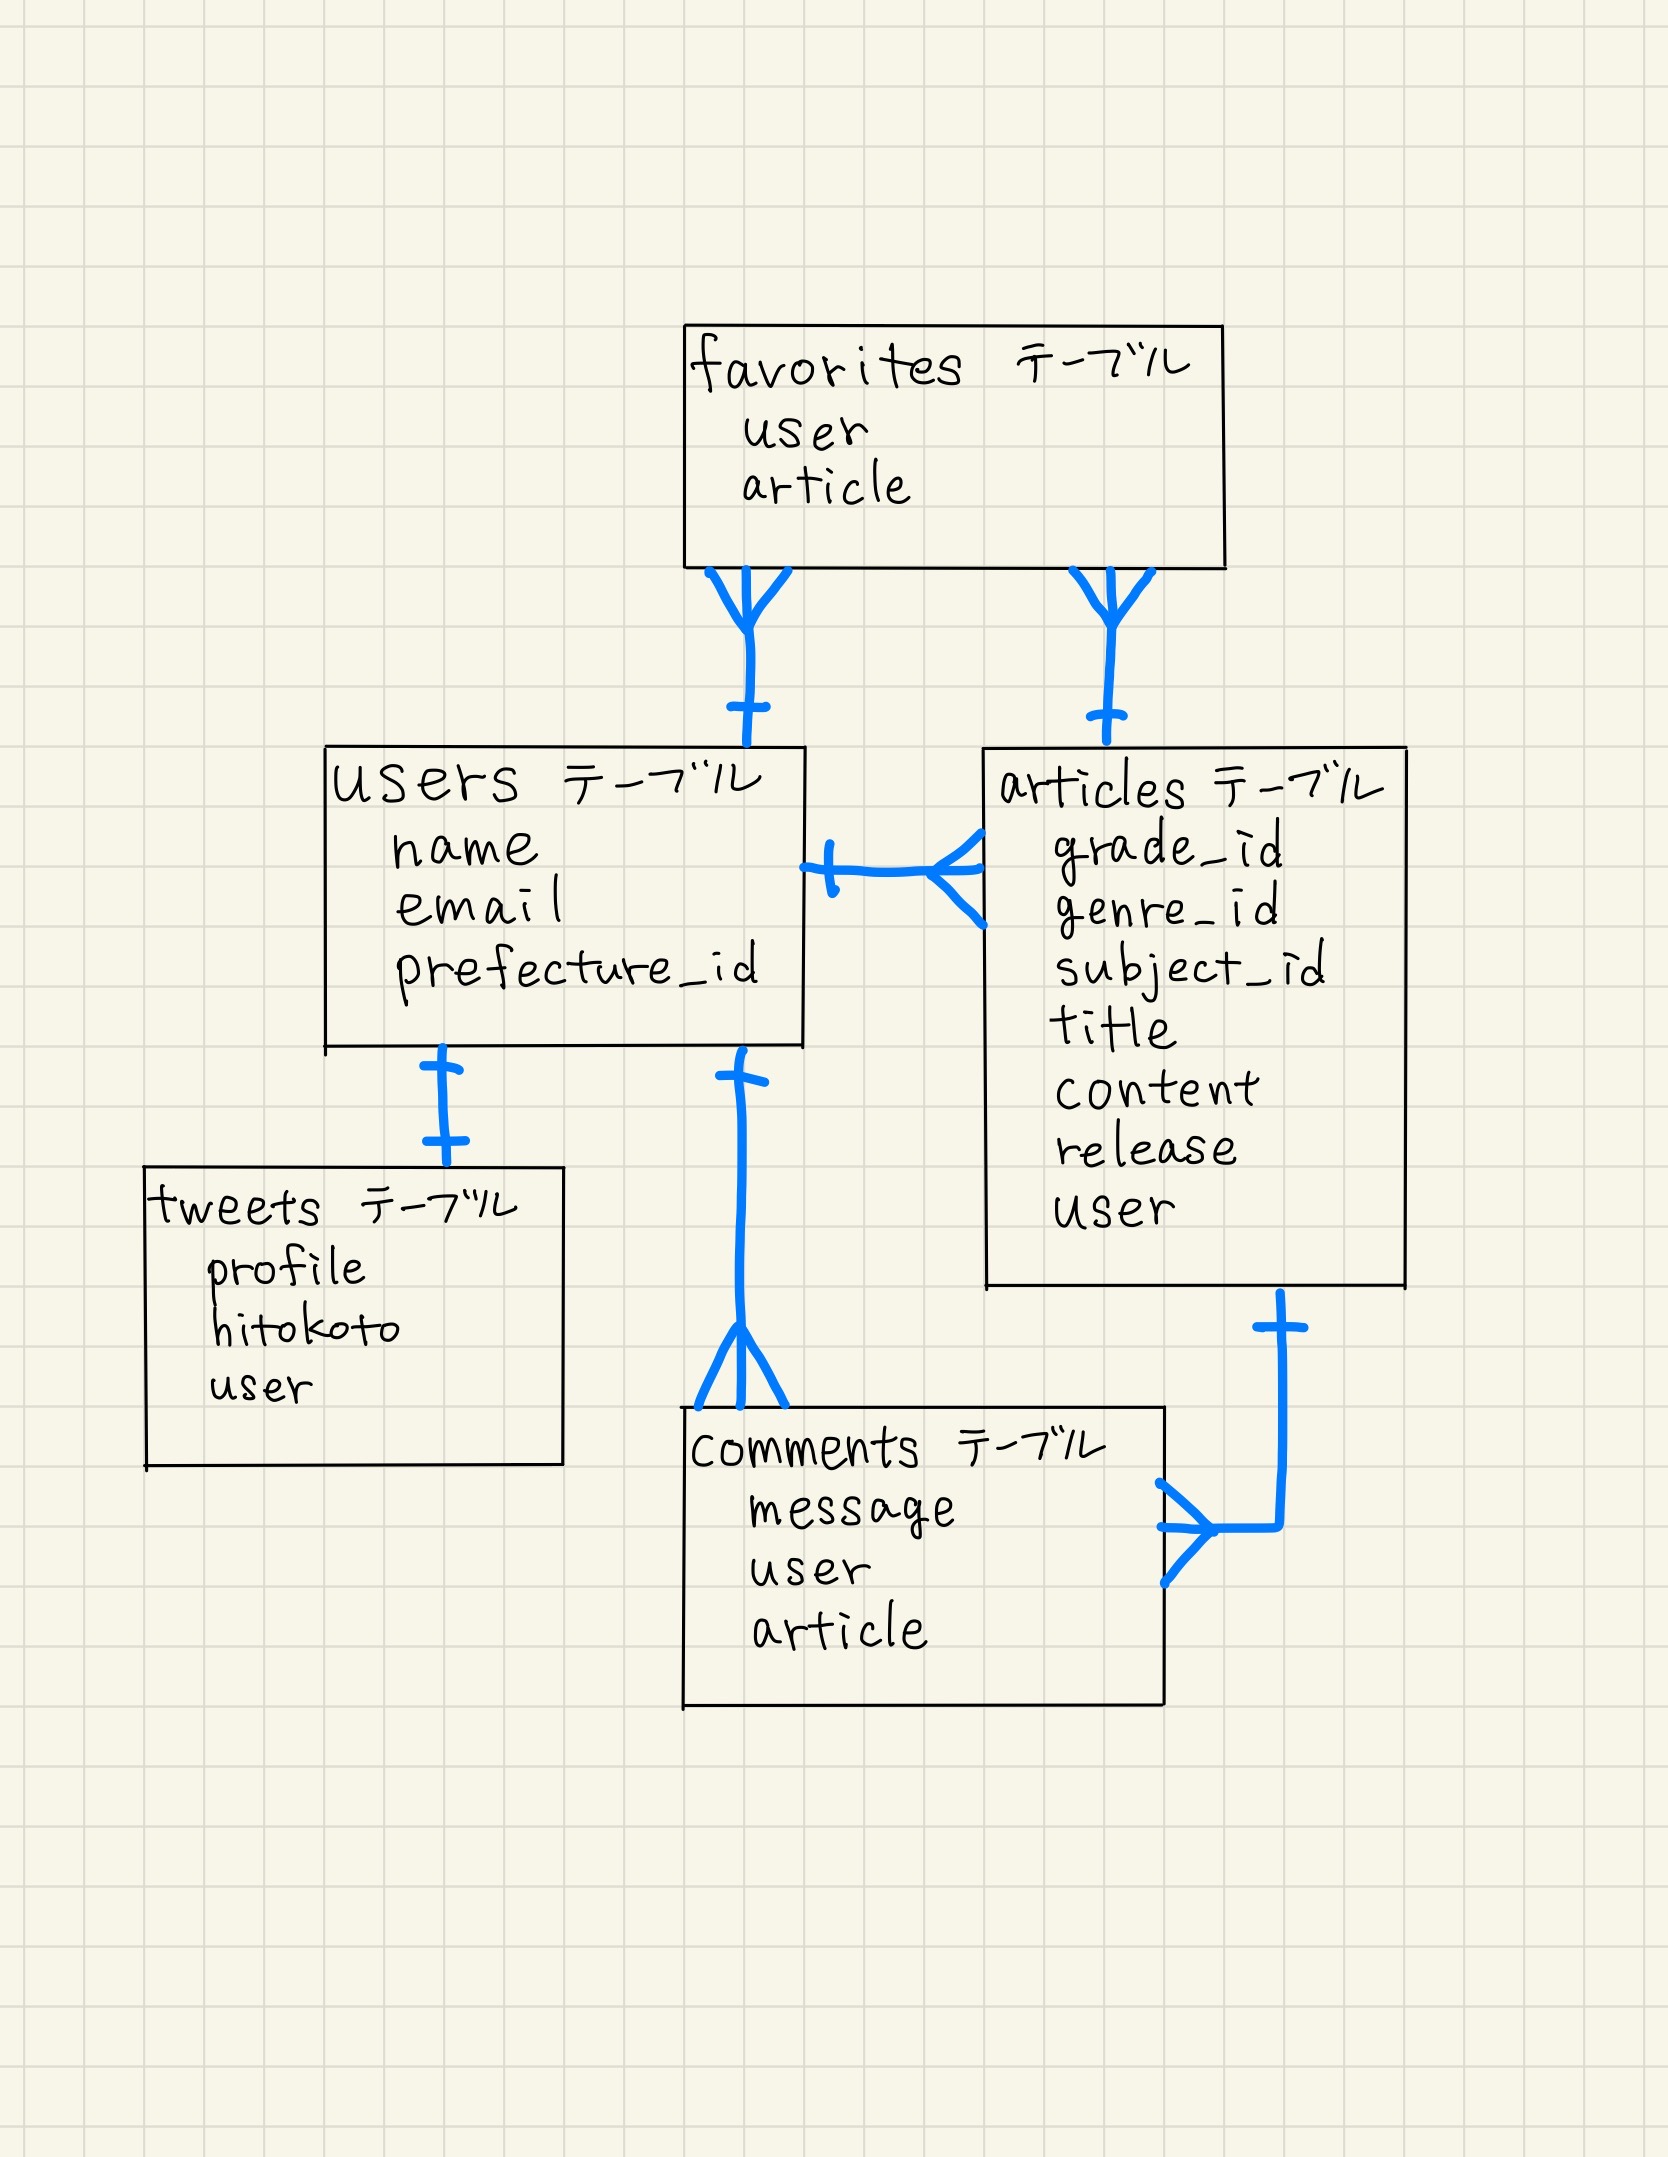 favorites テーブル
user
article
users テーブル
name
email
prefecture_id
articles テーブル
grade_id
genre_id
subject_id
title
content
release
user
tweets テーブル
profile
hitokoto
user
comments テーブル
message
user
article